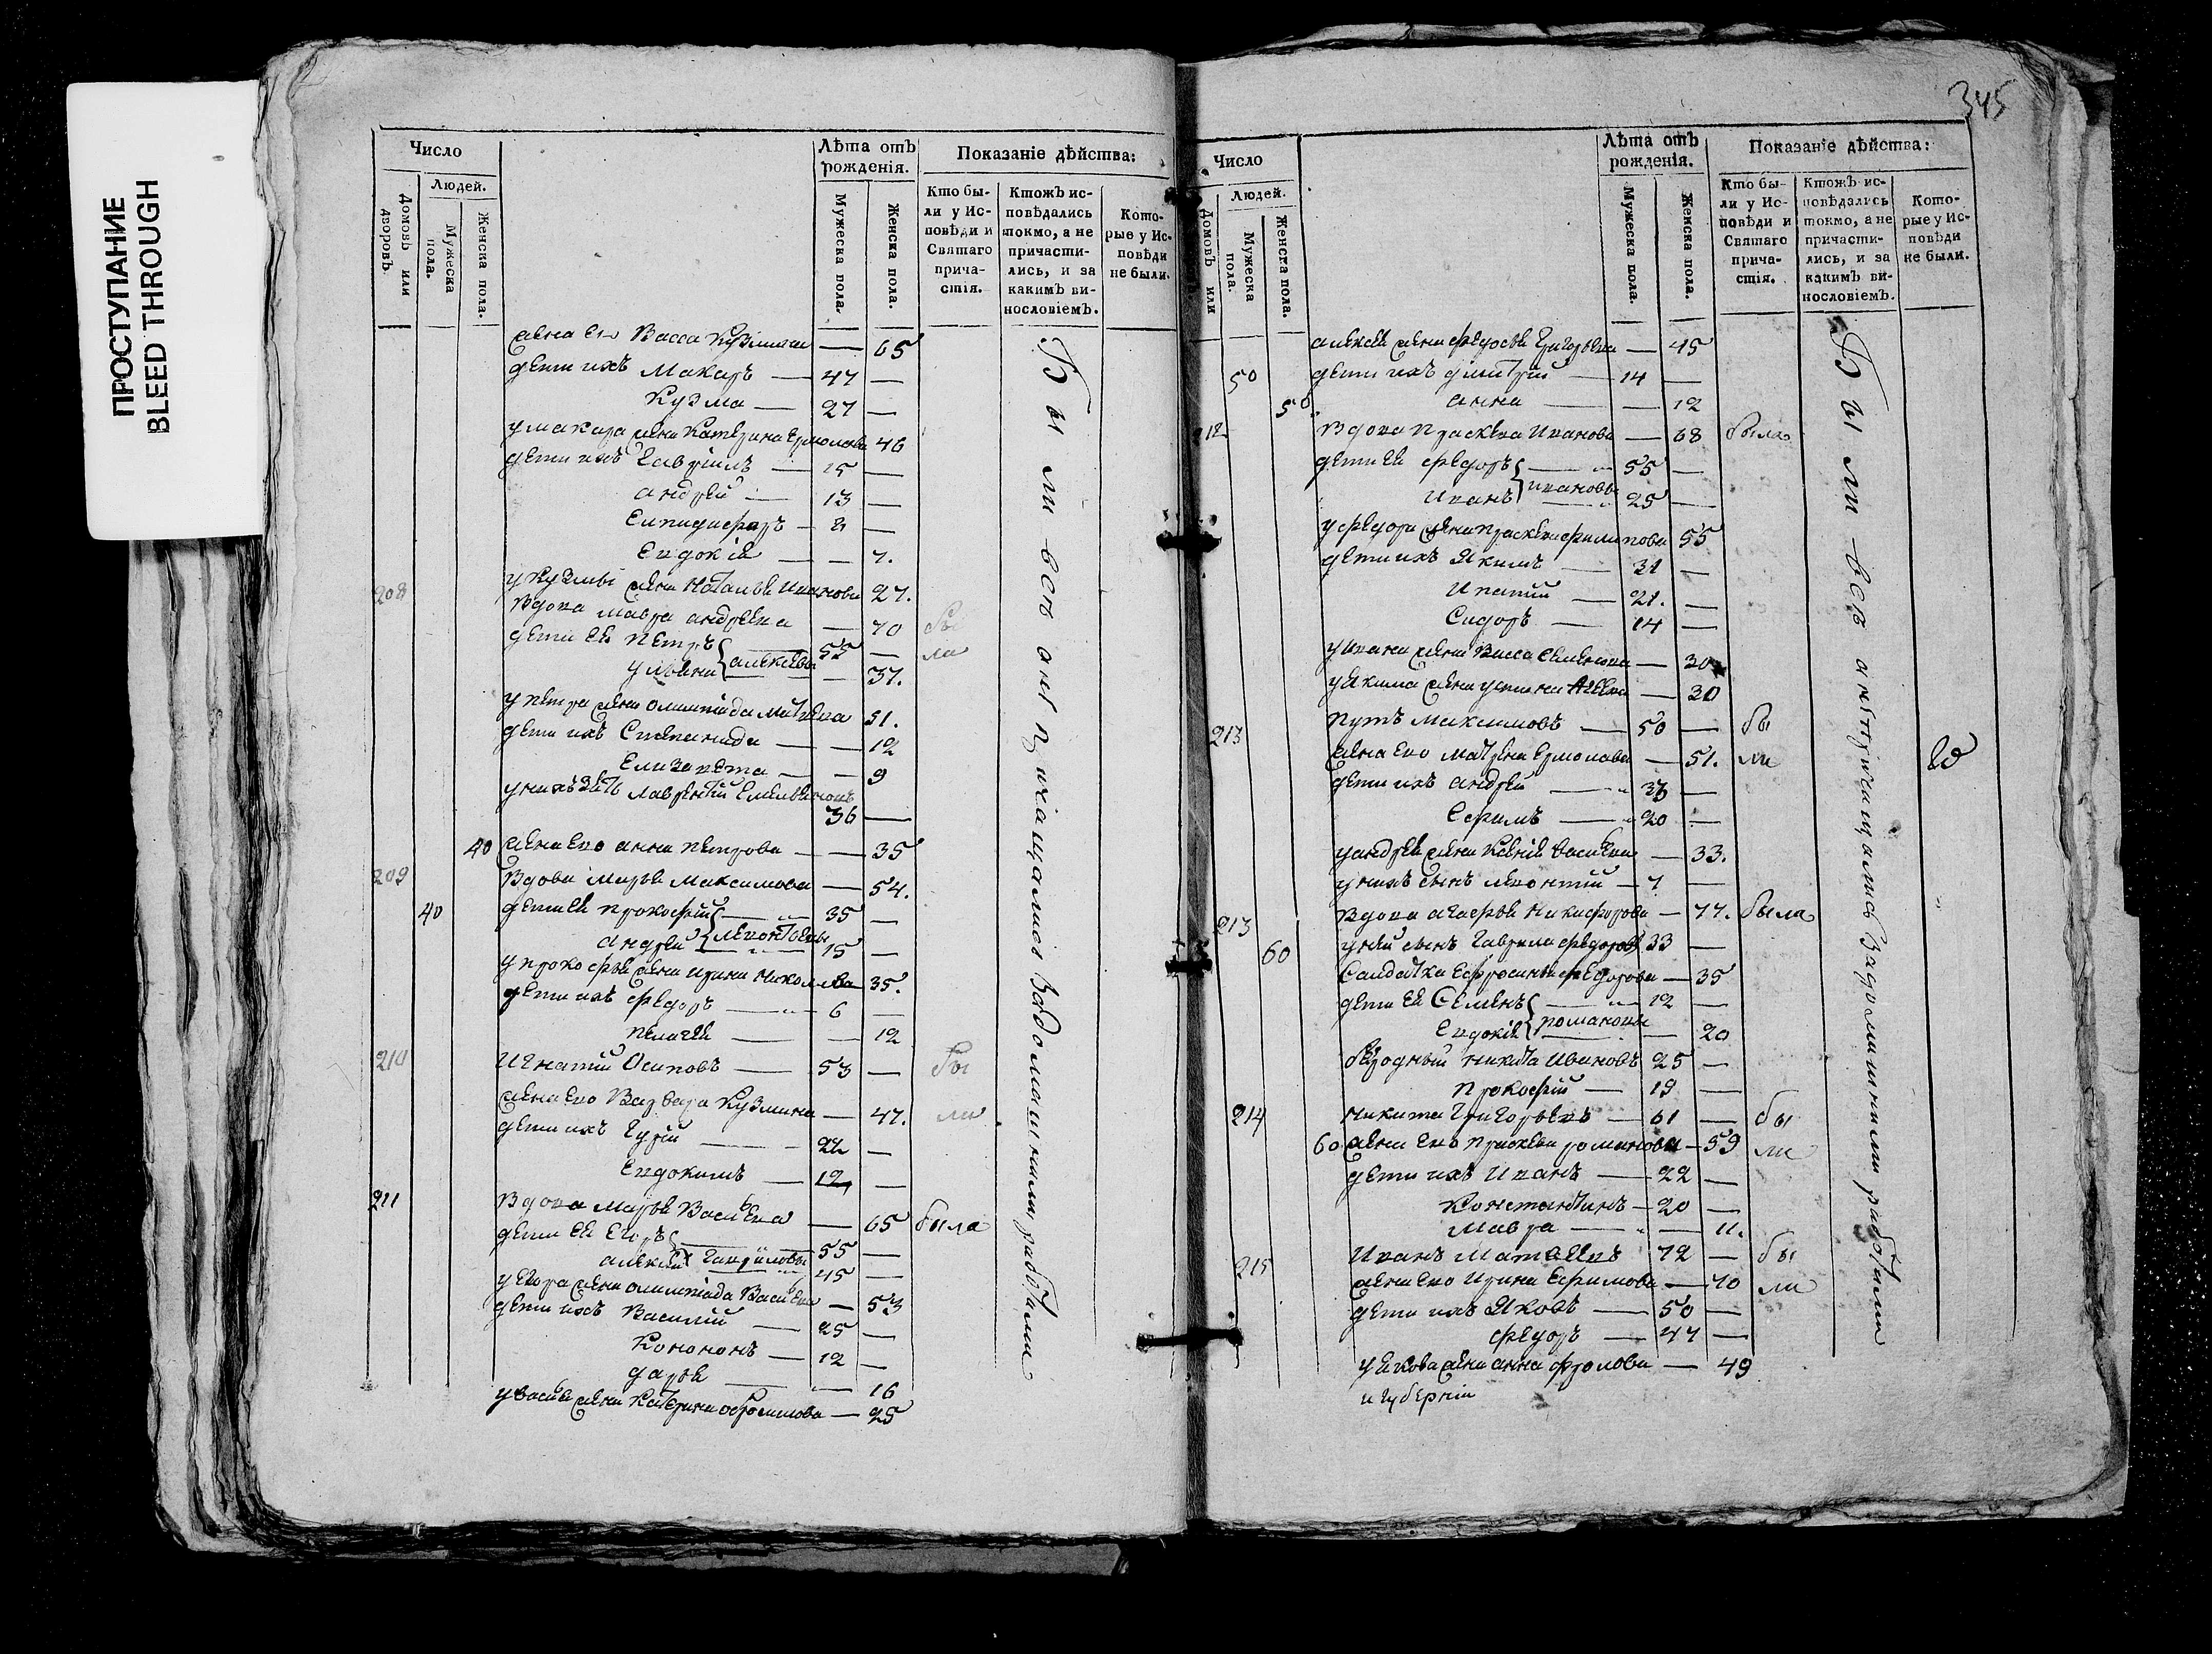 ПРОСТУПАНИЕ
BLEED THROUGH
Число
Людей.
Домовъ или дворовъ.
Мужеска пола.
Женска пола.
Лѣта отъ рожденія.
Мужеска пола.
Женска пола.
Показаніе дѣйства:
Кто были у Исповѣди и Святаго причастія.
Ктожъ исповѣдались токмо, а не причастились, и за какимъ винословіемъ.
Которые у Исповѣди не были.
жена ево Васса Кузмина — 65
дети ихъ Макаръ — 47 —
Кузма — 27 —
у макара жена Катерина Ермолова 46
дети ихъ Гавріилъ — 15 —
андрей — 13 —
Елпидифоръ —
Евдокія — — 7.
у Кузмы жена Наталья Иванова 27.
208 вдова мавра андреева — 70 бы
дети ея петръ — 52 — ли
ульяна алексеевы — 37.
у петра жена олимпіада матвеева 51.
дети ихъ Степанида — — 12
Елизавета — — 9
у нихъ зять лаврентій Емельяновъ
36 —
40 жена ево анна петрова — — 35
209 вдова марья максимова — 54.
40 дети ея прокофій — 35 —
андрей леонтьевы 15 —
у прокофья жена ирина николаева 35.
дети ихъ федоръ — 6 —
пелагея — — 12
210 Игнатій Осиповъ — 53 — бы
жена ево Варвара Кузмина — 47. ли
дети ихъ Гурій — 22 —
Евдокимъ — 12 —
211 вдова марья Васильева — 65 была
дети ея Егоръ — 55 —
алексей Гавриловы 45 —
у Егора жена олимпіада Васильева — 53
дети ихъ Василій — 25 —
Кононъ — 12 —
дарья — — 16
у василья жена Катерина — 25
Были всѣ а не причащались за домашними работами
345
Число
Людей.
Домовъ или
Мужеска пола.
Женска пола.
Лѣта отъ рожденія.
Мужеска пола.
Женска пола.
Показаніе дѣйства:
Кто были у Исповѣди и Святаго причастія.
Ктожъ исповѣдались токмо, а не причастились, и за какимъ винословіемъ.
Которые у Исповѣди не были.
алексея жена федосья Григорьева — 45
50 дети ихъ димитрій — 14 —
50 анна — — 12
212 вдова прасковья Иванова — 68 была
дети ея федоръ — 55 —
иванъ ивановы 25 —
у федора жена прасковья филипова 55
дети ихъ Якимъ — 31 —
Ипатій — 21. —
Сидоръ — 14 —
у ивана жена Васса Семенова — 30
у якима жена устинья — 30
213 максимовъ — 50 — бы
жена ево матрена Ермолаева — 51. ли
дети ихъ андрей — —
Ефимъ — 20 —
у андрея жена Ксенія Васильева — 33.
у нихъ сынъ леонтій — 7 —
213 вдова агафья никифорова — 77. была
60 у ней сынъ Гаврила федоровъ 33 —
Салдатка Ефросинья федорова — 35
дети ея Семенъ — 12 —
Евдокія романовы — 20
никита Ивановъ 25 —
прокофій — 19 —
214 никита Григорьевъ — 61 — бы
60 жена ево прасковья романова — 59 ли
дети ихъ Иванъ — 22 —
Константинъ — 20 —
мавра — — 11.
215 Иванъ Матвеевъ 72 — бы
жена ево Ирина Ефимова — 70 ли
дети ихъ Яковъ — 50 —
федоръ — 47 —
у якова жена анна фролова — 49
и губерніи
Были всѣ а не причащались за домашними работами